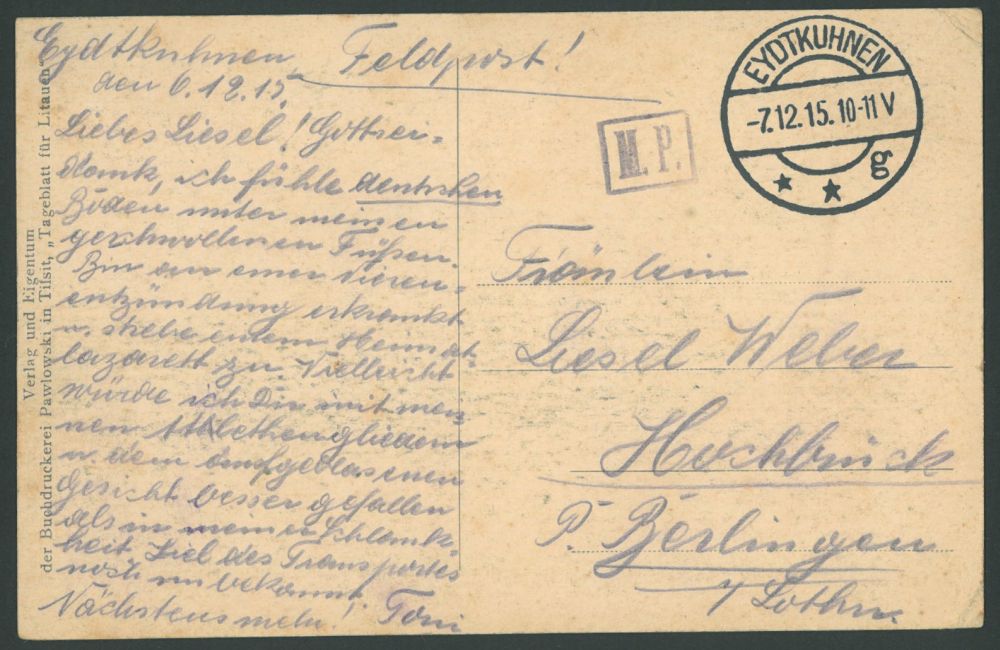 Eydtkuhnen, Feldpost!
den 6.12.15.
Liebes Liesel! Gottsei-
dank, ich fühle deutschen
Boden unter meinen
geschwollenen Füßen.
Bin an einer Nieren-
entzündung erkrankt
u. strebe einem Heimat-
lazarett zu. Vielleicht
würde ich Dir mit mei-
nen Athlethengliedern
u. dem aufgeblasenen
Gesicht besser gefallen
als in meiner Schlank-
heit. Ziel des Transportes
noch unbekannt.
Nächstens mehr! Toni
Verlag und Eigentum
der Buchdruckerei Pawlowski in Tilsit, „Tageblatt für Litauen“
M. P.
EYDTKUHNEN
-7.12.15.10-11 V
* * gg
Fräulein
Liesel Weber
Hochbrück
P. Berlingen
i/ Lothr.